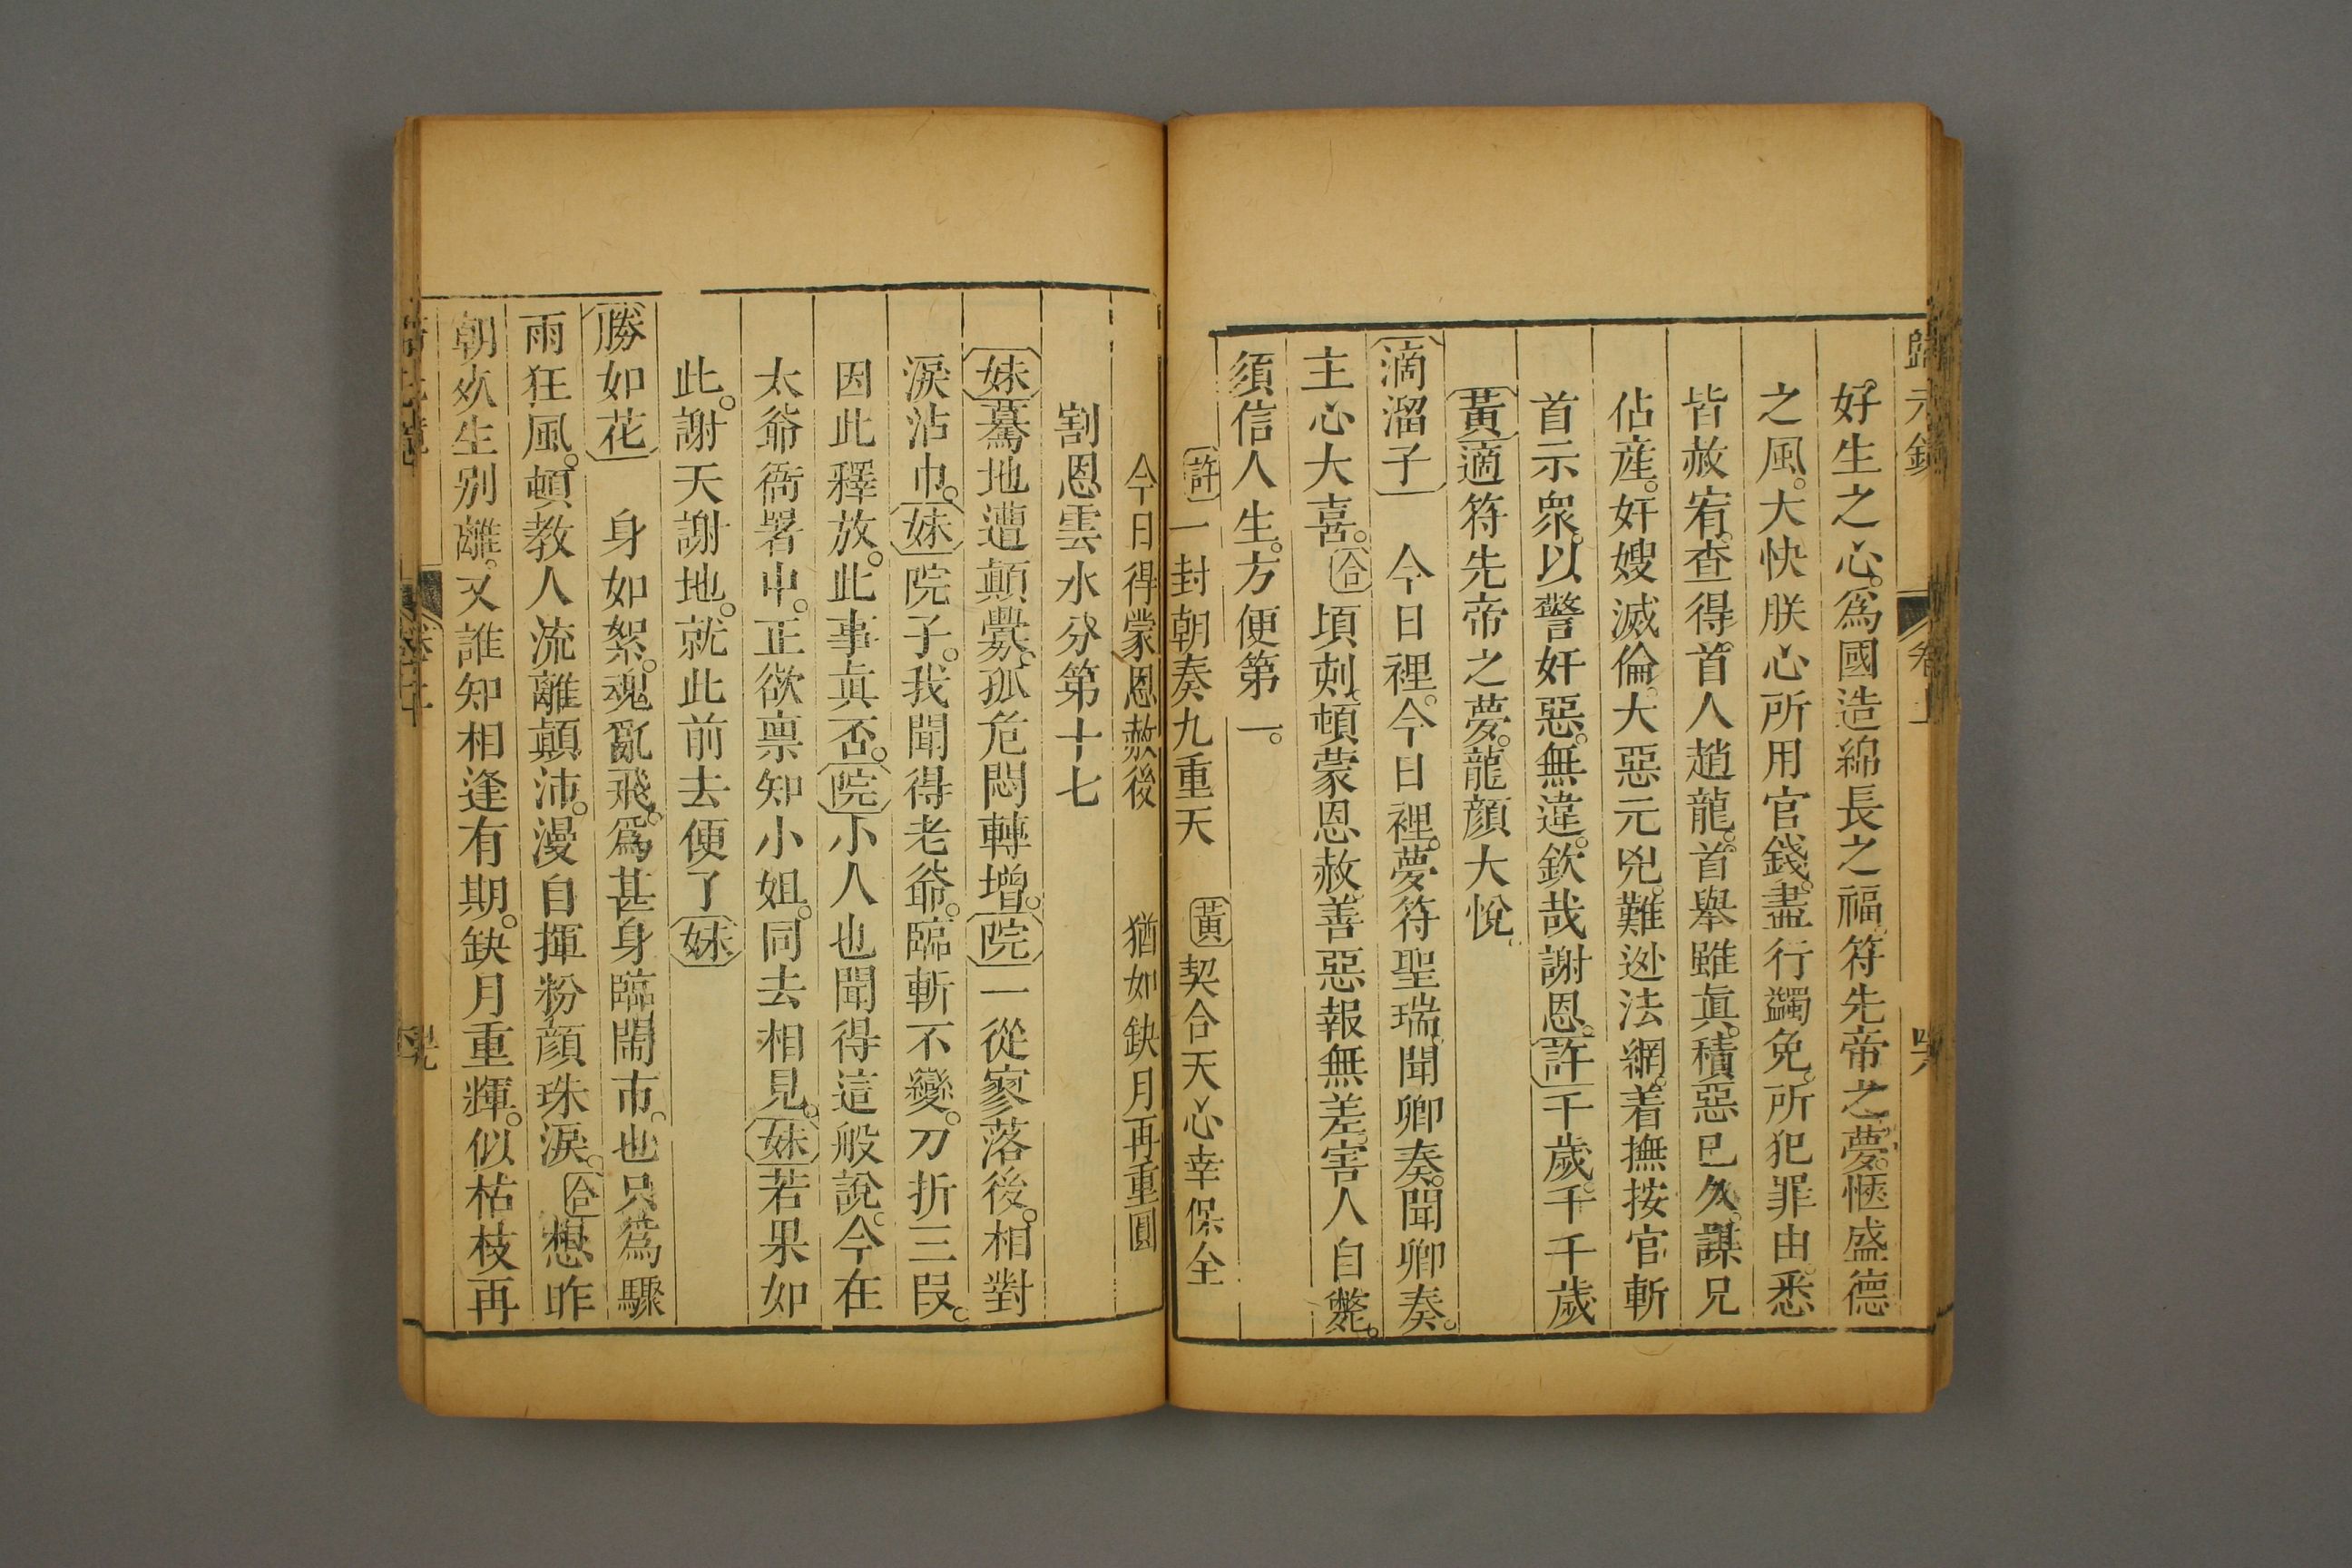 歸元鏡 卷上
好生之心。爲國造綿長之福。符先帝之夢。愜盛德
之風。大快朕心。所用官錢。盡行蠲免。所犯罪由。悉
皆赦宥。查得首人趙龍。首舉雖眞。積惡已久。謀兄
佔産。奸嫂滅倫。大惡元兇。難逊法網。着撫按官斬
首示衆。以警奸惡。無違。欽哉謝恩。許千歲。千千歲
黃適符先帝之夢。龍顔大悅。
滴溜子 今日裡。今日裡。夢符聖瑞。聞卿奏。聞卿奏。
主心大喜。合頃刻。頓蒙恩赦。善惡報無差。害人自斃。
須信人生。方便第一。
許一封朝奏九重天 黃契合天心幸保全
今日得蒙恩赦後 猶如缺月再重圓
割恩雲水分第十七
妹驀地遭顛釁。孤危悶轉增。院一從寥落後。相對
淚沾巾。妹院子。我聞得老爺。臨斬不變。刀折三段。
因此釋放。此事眞否。院小人也聞得這般說。今在
太爺衙署中。正欲禀知小姐。同去相見。妹若果如
此。謝天謝地。就此前去便了妹
勝如花 身如絮。魂亂飛。爲甚身臨閙市。也只爲驟
雨狂風。頓教人流離顛沛。漫自揮粉顔珠淚。合想昨
朝夾生別離。又誰知相逢有期。缺月重輝。似枯枝再